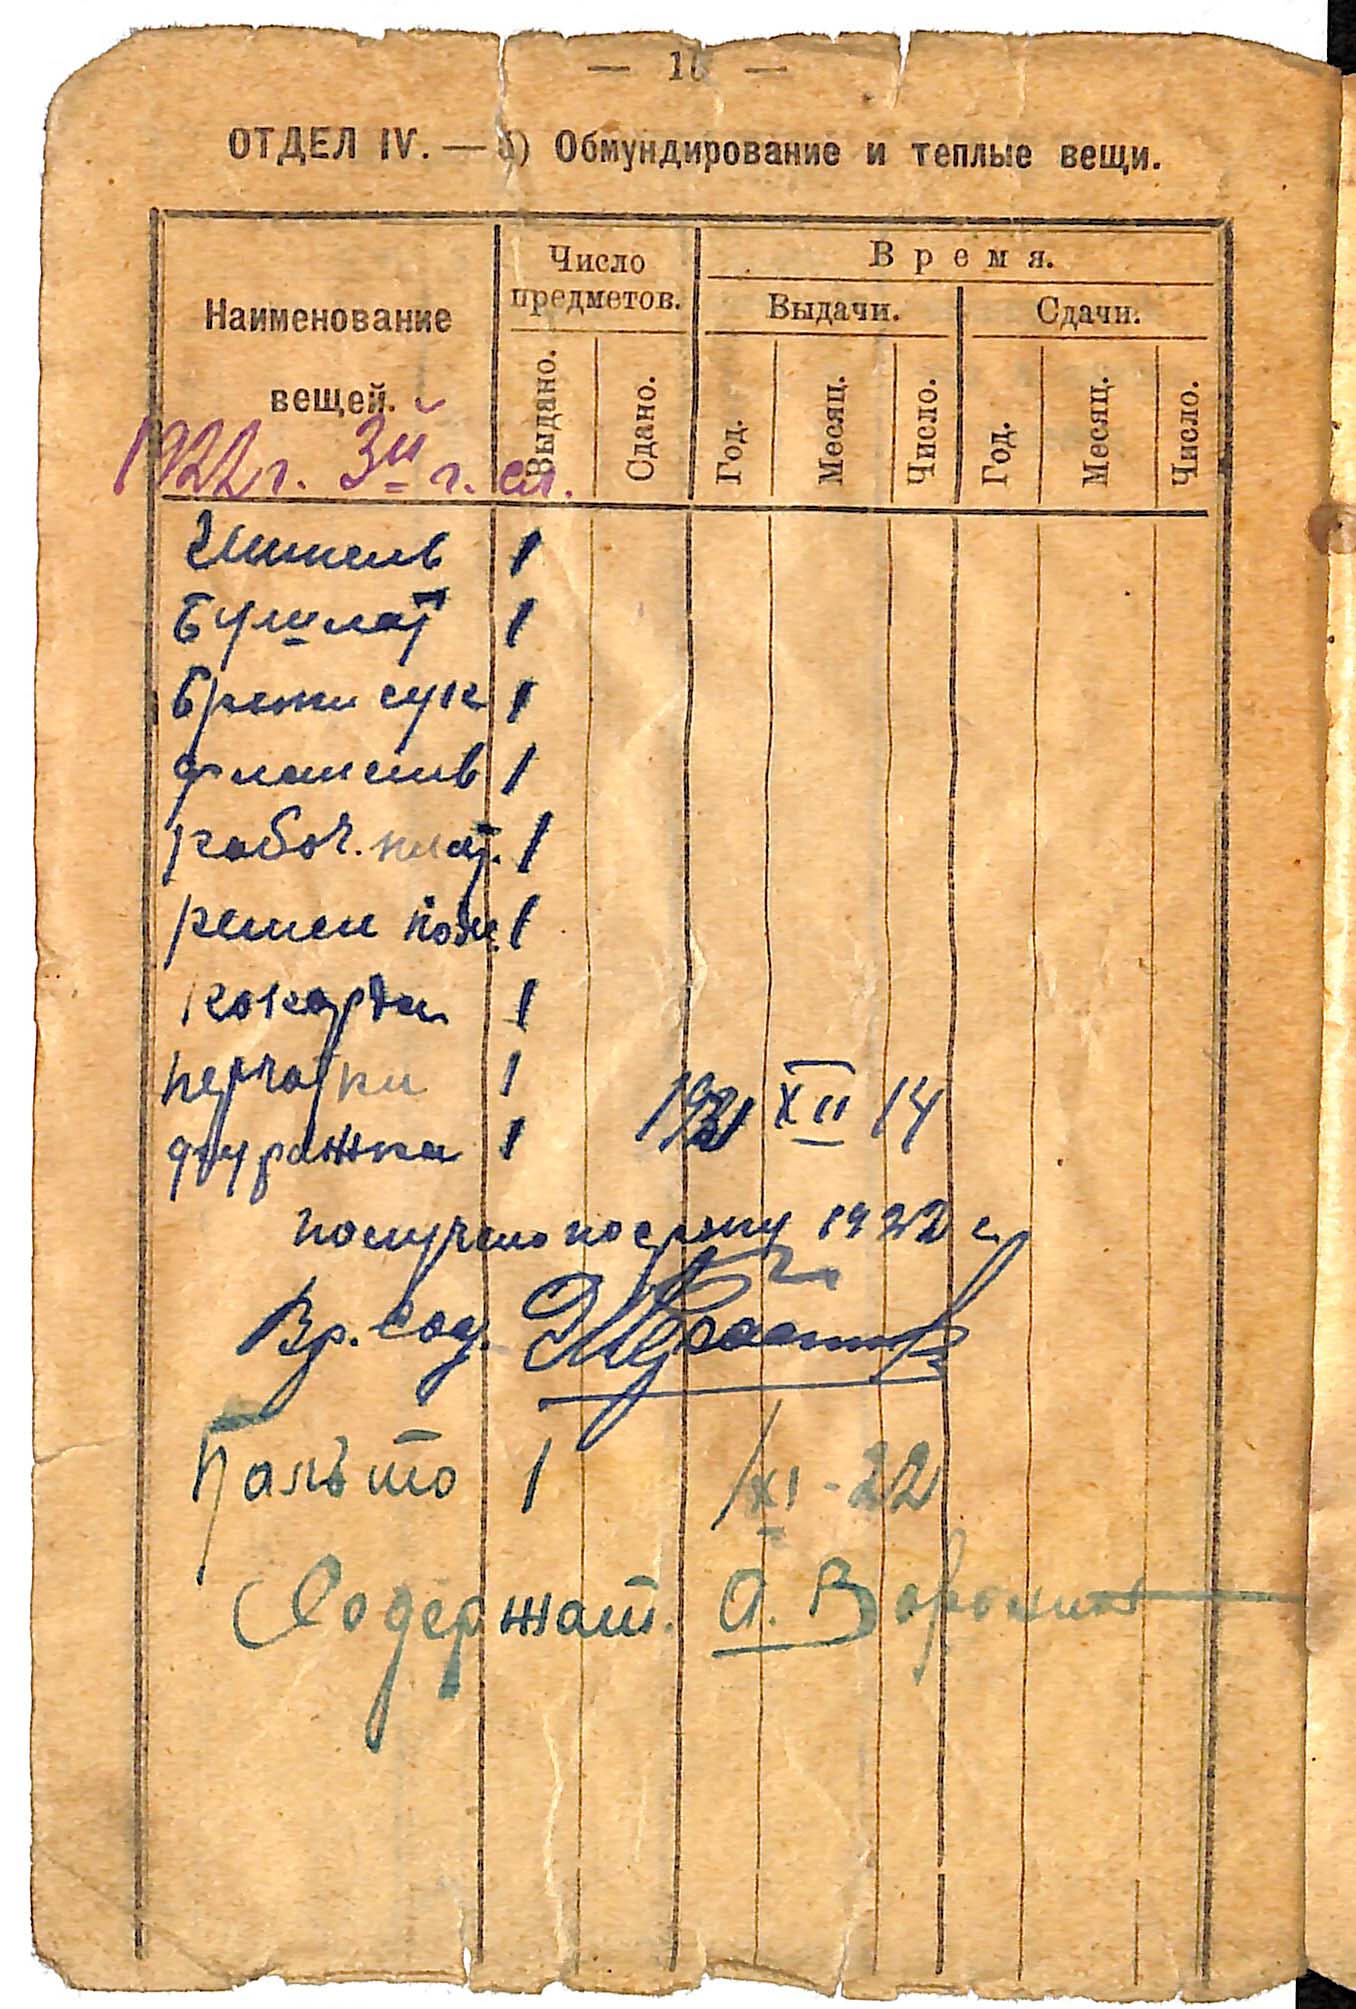 — 10 —
ОТДЕЛ IV. — б) Обмундирование и теплые вещи.
Наименование вещей.
Число предметов.
Время.
Выдачи.
Сдачи.
Выдано.
Сдано.
Год.
Месяц.
Число.
Год.
Месяц.
Число.
1922 г. 3й г. сл.
Шинель 1
Бушлат 1
Брюки сук 1
фланелев 1
рабоч. плат. 1
ремен пояс 1
кокарда 1
перчатки 1
фуражка 1 1921 XII 14
получено по сроку 1922 г.
Вр. сод.
Пальто 1 / XI - 22
Содержат. А. Воронин